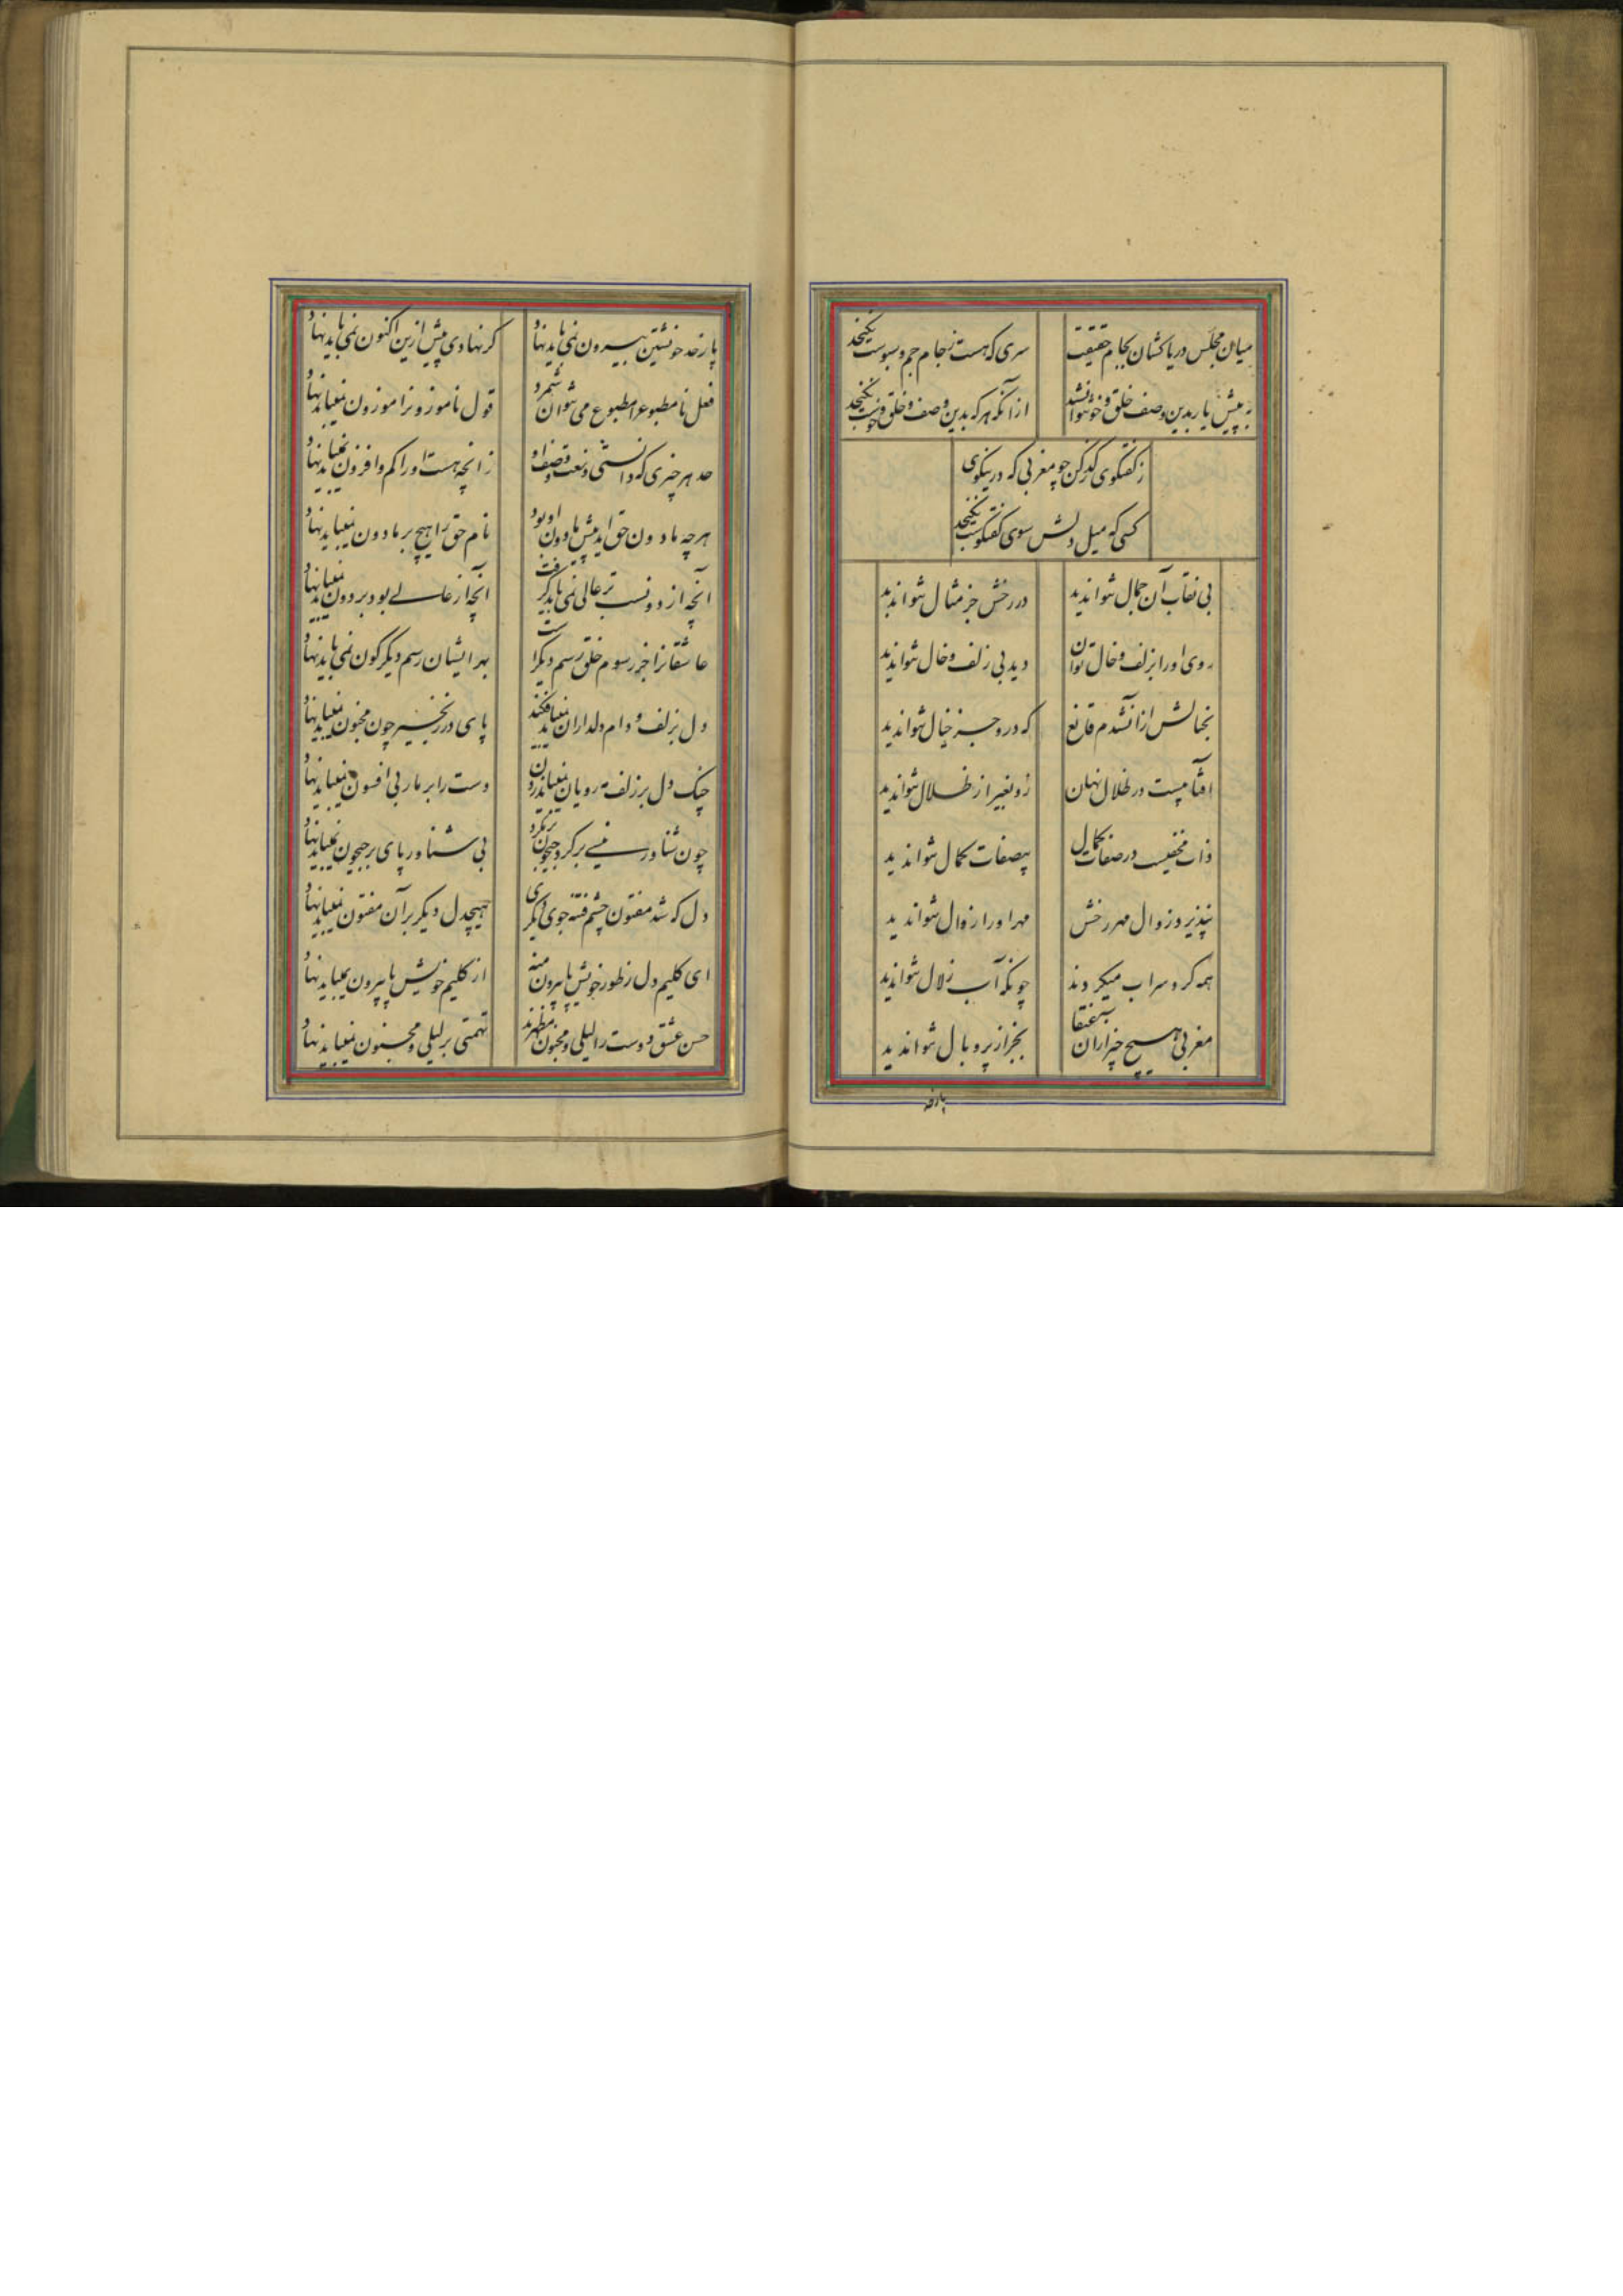 میان مجلس دریاکشان بجام حقیقت
سری که هست ز جام جم و سبوست نگنجد
به پیش یار بدین وصف خلق و خو نتوان شد
از آنکه هر که بدین وصف و خلق و خوست نگنجد
ز گفتگوی گذر کن چو مغربی که در ین کوی
کسی که میل دلش سوی گفتگوست نگنجد
بی نقاب آن جمال نتوان دید
در رخش جز مثال نتوان دید
روی او را بزلف و خال توان
دید بی زلف و خال نتوان دید
بخیالش از آن شدم قانع
که در و جز خیال نتوان دید
آفتابیست در ظلال نهان
زو بغیر از ظلال نتوان دید
ذات مخفیست در صفات کمال
بیصفات کمال نتوان دید
نپذیرد زوال مهر رخش
مهر او را زوال نتوان دید
همه گرد سراب میگردند
چونکه آب زلال نتوان دید
مغربی هیچ چیز از آن عنقا
بجز از پر و بال نتوان دید
پا ز حد
پا ز حد خویشتن بیرون نمی باید نهاد
گر نهادی پیش ازین اکنون نمی باید نهاد
فعل نامطبوع را مطبوع می نتوان شمرد
قول ناموزون را موزون نمیباید نهاد
حد هر چیزی که دانستی و نعت و وصف او
زانچه هست او را کم و افزون نمیباید نهاد
هرچه مادون حق آید پیش مادون او بود
نام حق را هیچ بر مادون نمیباید نهاد
آنچه از دونست بر عالی نمی باید گرفت
آنچه از عالی بود بر دون نمیباید نهاد
عاشقانرا جز رسوم خلق رسم دیگرست
بهر ایشان رسم دیگر گون نمی باید نهاد
دل بزلف و دام دلداران نمیباید فکند
پای در زنجیر چون مجنون نمیباید نهاد
چنگ دل بر زلف مه رویان نمیباید زدن
دست را بر مار بی افسون نمیباید نهاد
چون شناور نیستی بر گرد جیحون
بی شناور پای بر جیحون نمیباید نهاد
دل که شد مفتون چشم فتنه جوی دیگری
هیچ دل دیگر بر آن مفتون نمیباید نهاد
ای کلیم دل ز طور خویش پا بیرون منه
از گلیم خویش پا بیرون نمیباید نهاد
حسن عشق دوست را لیلی و مجنون مظهرند
تهمتی بر لیلی و مجنون نمیباید نهاد